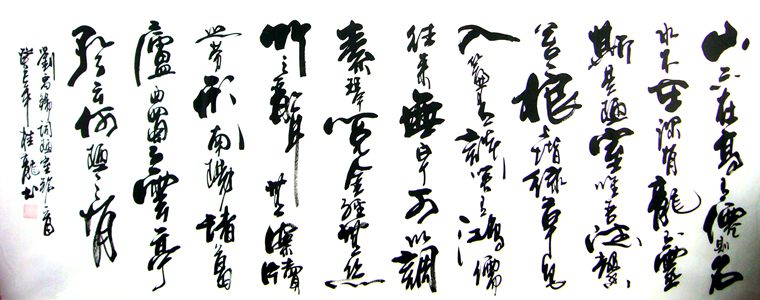 山不在高有僊則名
水不在深有龍則靈
斯是陋室唯吾德馨
苔痕上階綠草色
入簾青談笑有鴻儒
往來無白丁可以調
素琴閱金經無絲
竹之亂耳無案牘
之勞形南陽諸葛
廬西蜀子雲亭
孔子云何陋之有
劉禹錫詞陋室銘一首
癸巳年桂龍書